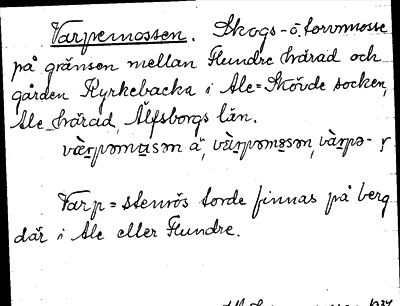 Varpemossen. Skogs- o torvmosse
på gränsen mellan Flundre härad och
gården Kyrkebacka i Ale=Skövde socken,
Ale härad, Älfsborgs län.
Varp = stenrös torde finnas på berg
där i Ale eller Flundre.